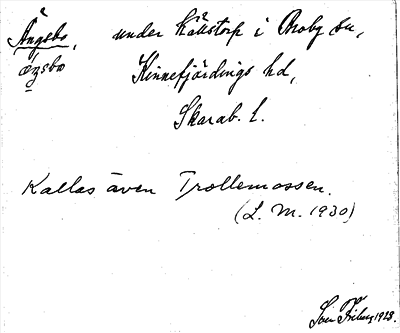 Ängsbo, under Källstorp i Broby sn,
ǟŋsbo Kinnefjärdings hd,
Skarab. l.
Kallas även Trollemossen.
(L. M. 1930)
Ivar Friberg 1923.